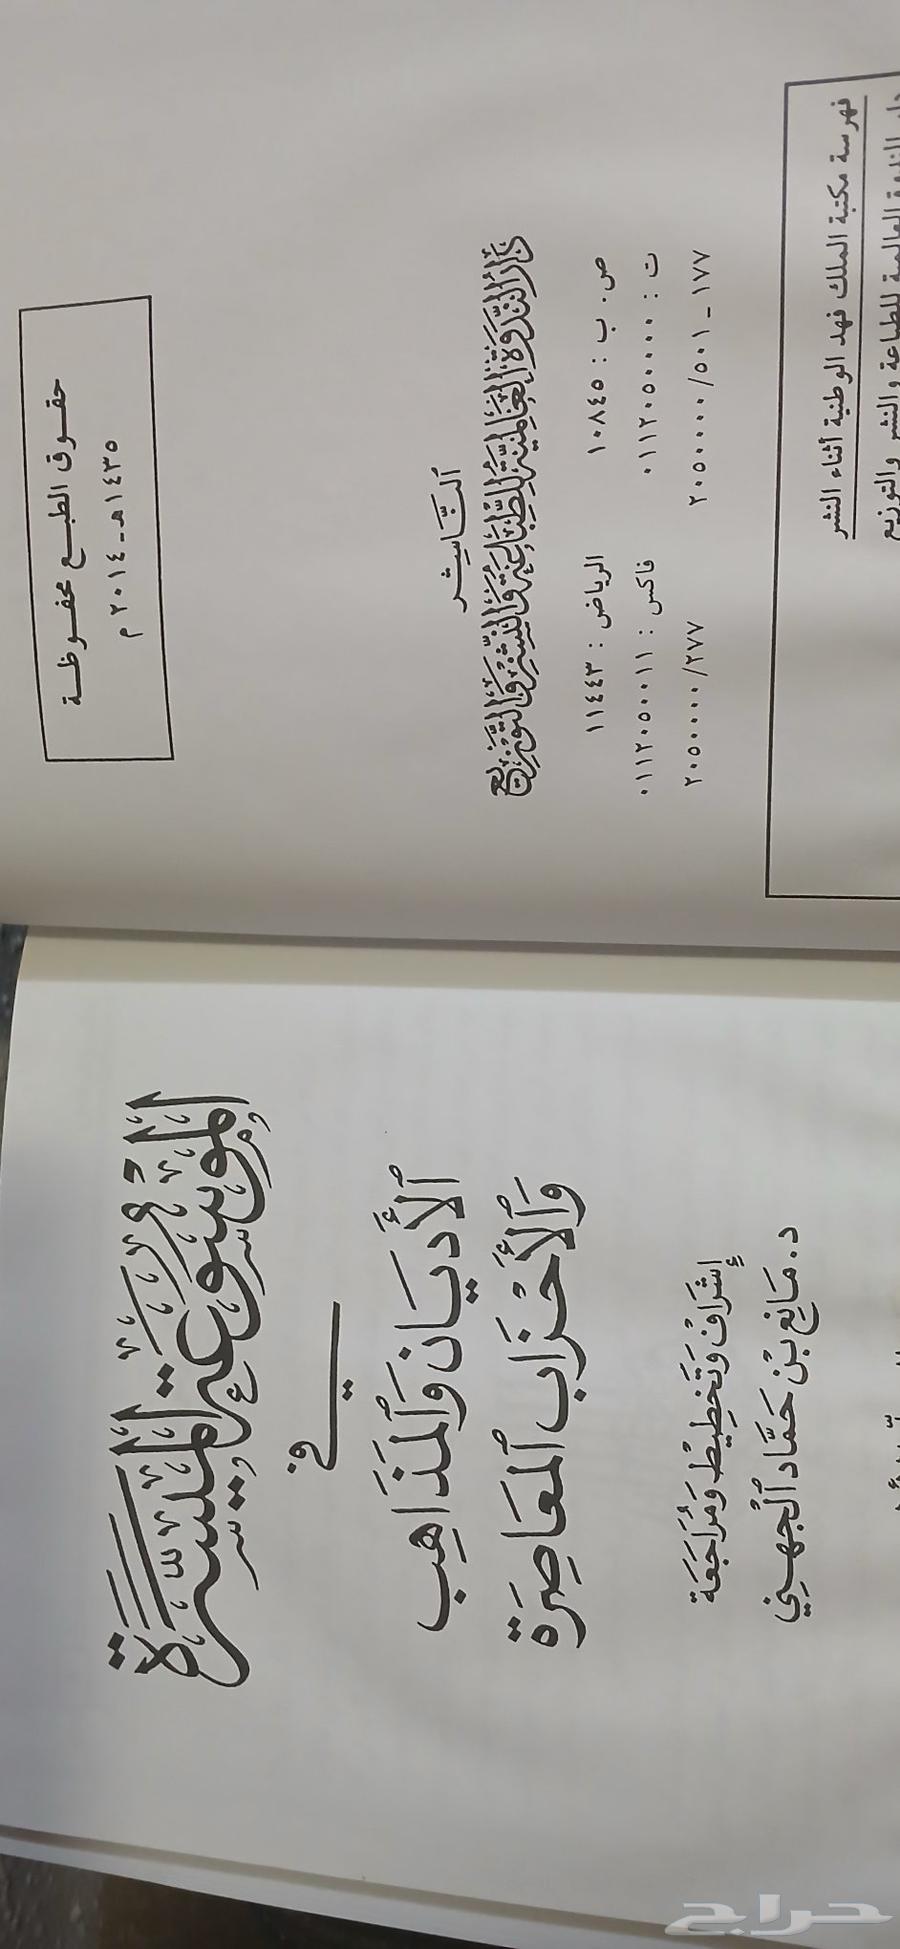 حقوق الطبع محفوظة
١٤٣٥هـ - ٢٠١٤م
الناشر
دار الندوة العالمية للطباعة والنشر والتوزيع
ص . ب : ١٠٨٤٥ الرياض : ١١٤٤٣
ت : ٠١١٢٠٥٠٠٠٠ فاكس : ٠١١٢٠٥٠٠١١
١٧٧ - ٢٠٥٠٠٠٠/٥٠١ ٢٠٥٠٠٠٠/٢٧٧
فهرسة مكتبة الملك فهد الوطنية أثناء النشر
دار الندوة العالمية للطباعة والنشر والتوزيع
المَوْسُوعَة المُيَسَّرَة
في
ٱلأَدْيَان وَٱلمَذَاهِب
وَٱلأَحْزَاب ٱلمُعَاصِرَة
إِشْرَافُ وَتَخْطِيطُ وَمُرَاجَعَة
د. مَانِع بْن حَمَّاد ٱلْجُهَنِي
حراج